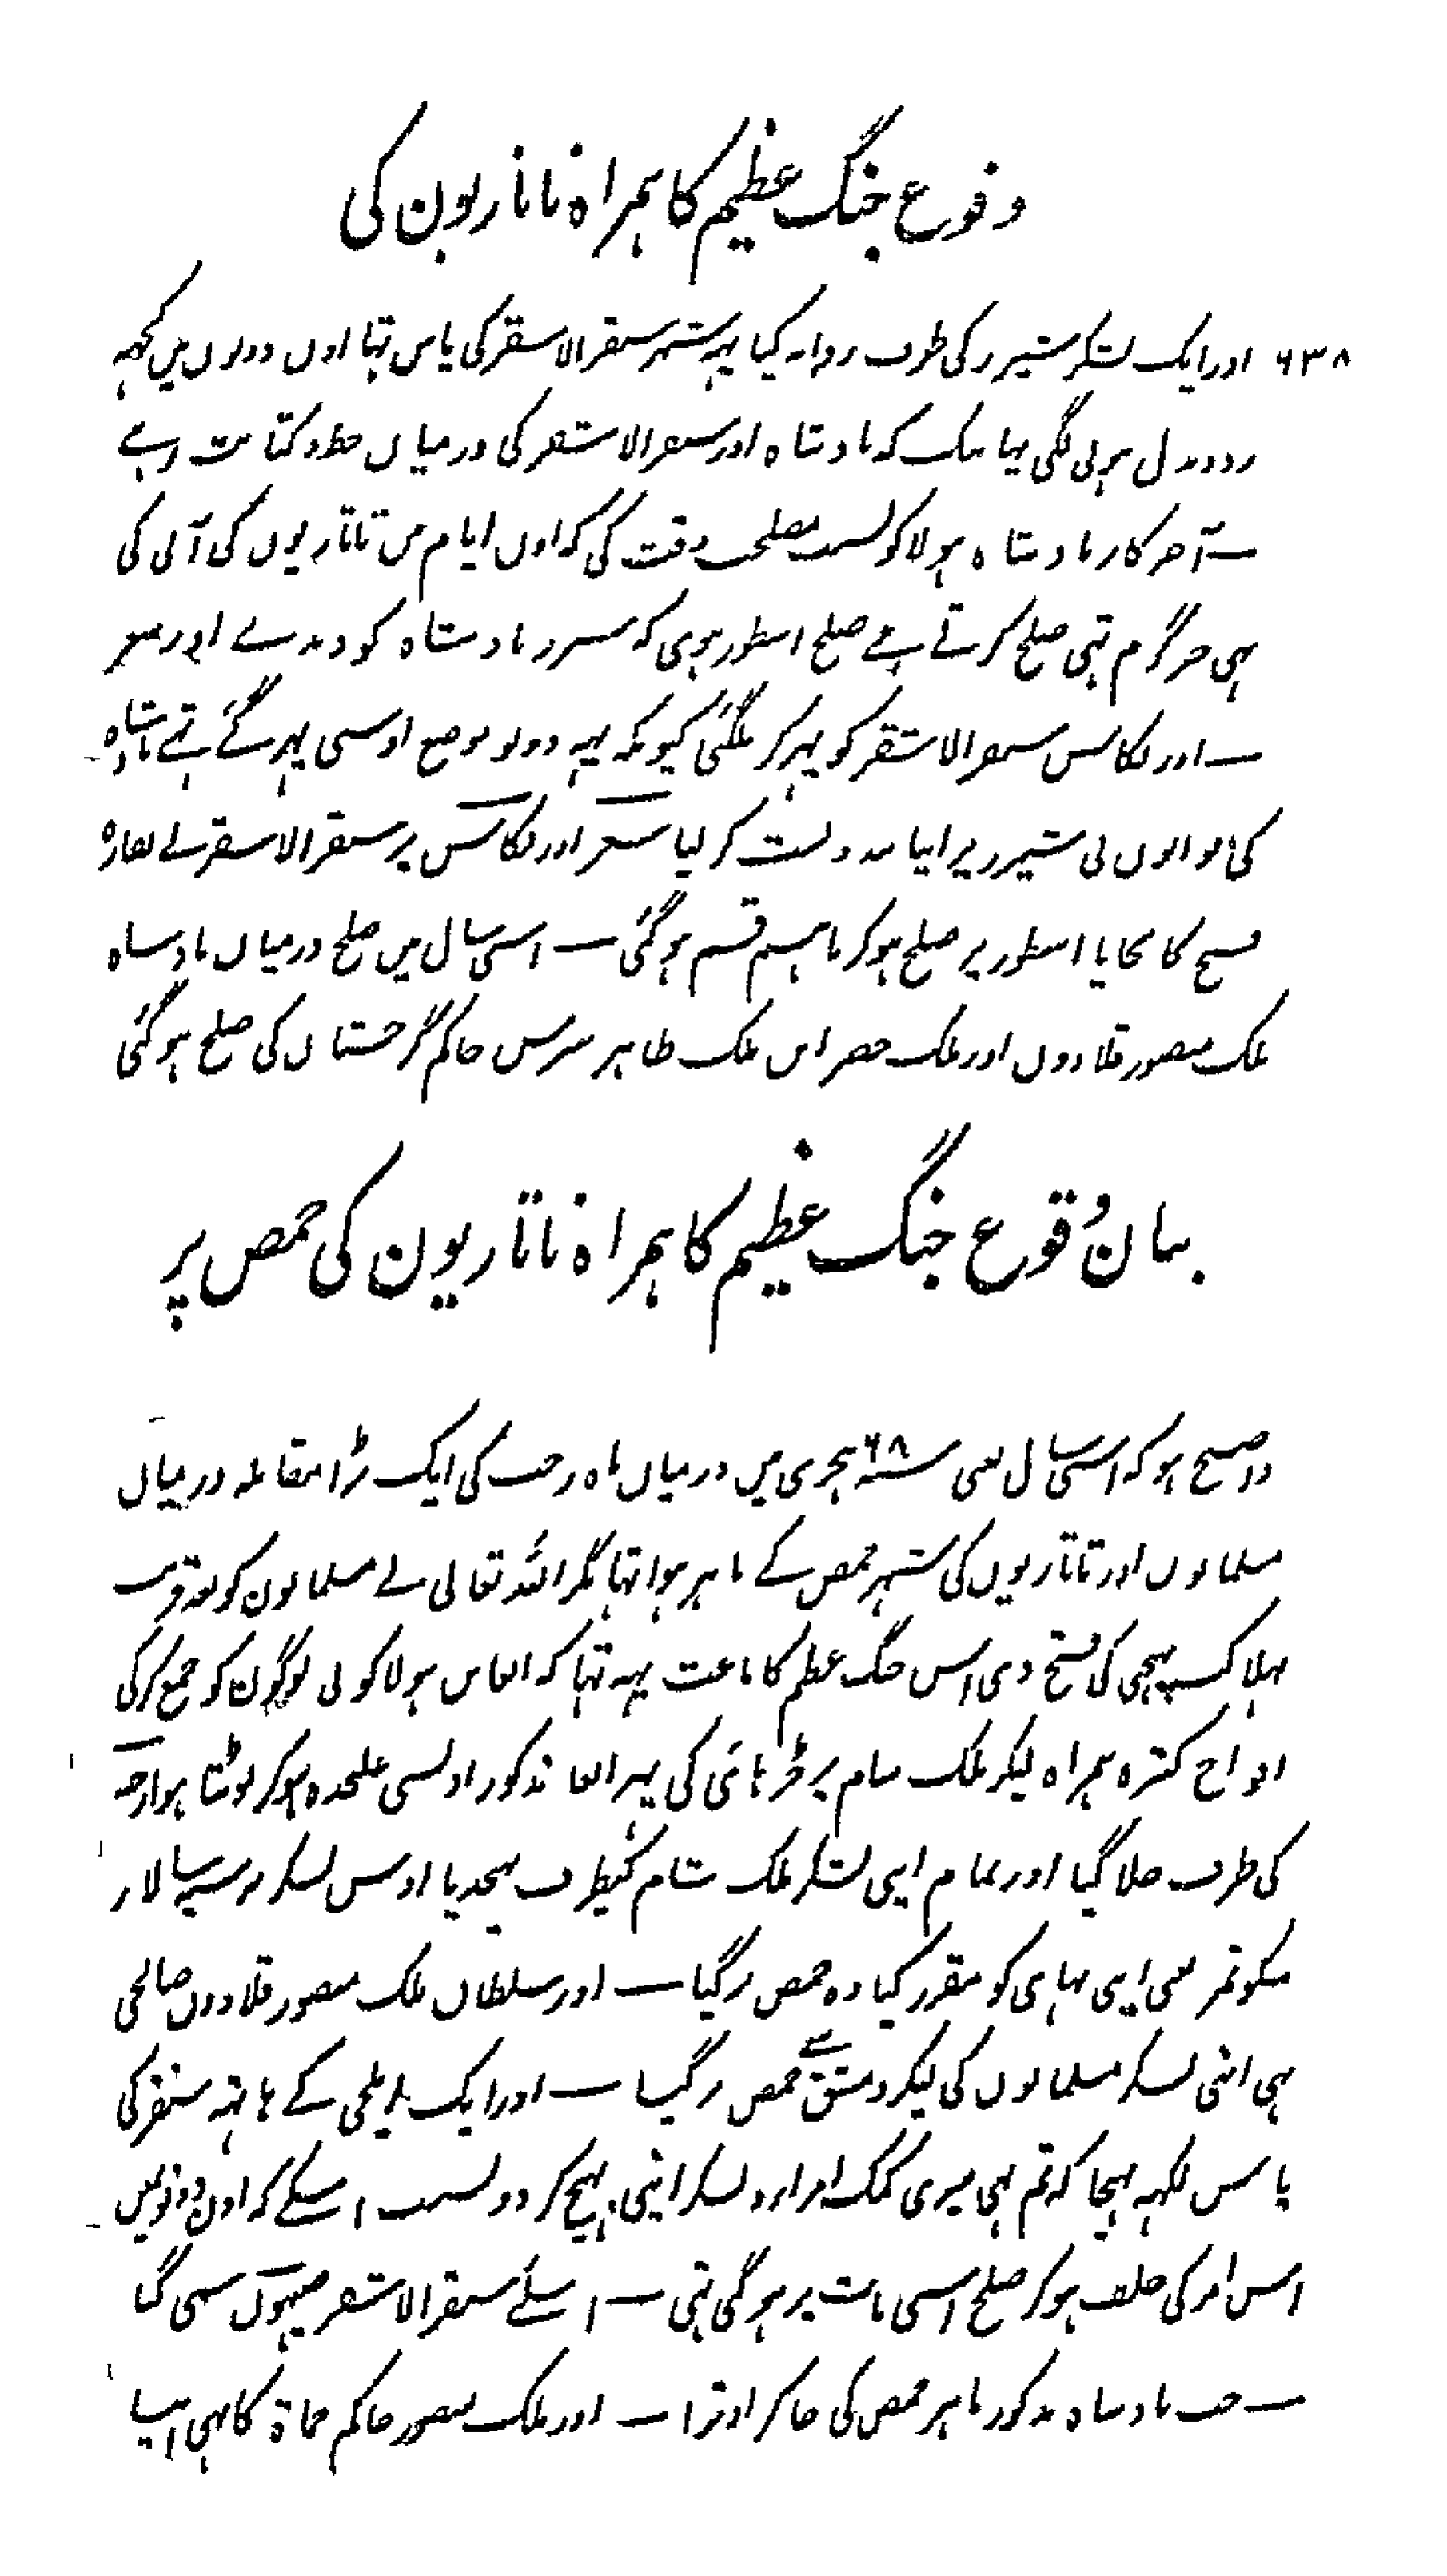 وقوع جنگ عظیم کا ہمراہ تاتاریون کی
۶۳۸ اور ایک لشکر شیزر کی طرف روانہ کیا یہہ شہر سنقر الاشقر کی پاس تہا اون دونوں میں کچہہ
ردوبدل ہوئی لگی یہانتک کہ بادشاہ اور سنقر الاشقر کی درمیاں خط و کتابت رہے
آخر کار بادشاہ ہولاکو مصلحت وقت کی کہ اوں ایام میں تاتاریوں کی آنی کی
ہی گرم تہی صلح کرتے ہے صلح اسطور ہوی کہ شیزر بادشاہ کو دیدے اور
اور بکاس سنقر الاشقر کو پہر کر ملگئی کیونکہ یہہ دونو موضع اوسی پہر گئے تہے بادشاہ
کی نوابوں نی شیزر پر اپنا بندوبست کر لیا اور بکاس پر سنقر الاشقر نے
کا اسطور پر صلح ہو کر باہم قسم ہو گئی اسی سال میں صلح درمیاں بادشاہ
ملک منصور قلاووں اور ملک خضر ابن ملک ظاہر بیبرس حاکم کی صلح ہو گئی
بیان وُقوع جنگ عظیم کا ہمراہ تاتاریون کی حمص پر
واضح ہو کہ اسی سال یعنی سنہ ۶۸ ہجری میں درمیاں ماہ رجب کی ایک بڑا مقابلہ درمیاں
مسلمانوں اور تاتاریوں کی شہر حمص کے باہر ہوا تہا مگر اللہ تعالی نے مسلمانون کو بعد قریب
ہلاکت پہنچی کی فتح دی اس جنگ عظیم کا باعث یہہ تہا کہ ابغا بن ہولاکو نی لوگون کو جمع کر کی
افواج کثیرہ ہمراہ لیکر ملک شام پر چڑھائی کی پہر ابغا مذکور اونسی علحدہ ہو کر لوٹتا ہوا رحبہ
کی طرف چلا گیا اور تمام اپنی لشکر ملک شام کیطرف بہیجدیا اوس لشکر پر سپہ سالار
منکوتمر یعنی اپنی بہای کو مقرر کیا وہ حمص پر گیا اور سلطاں ملک منصور قلاووں صالحی
بہی اپنی لشکر مسلمانوں کی لیکر دمشق سے حمص پر گیا اور ایک ایلچی کے ہاتہہ سنقر کی
پاس لکہہ بہیجا کہ تم بہی میری کمک امرا و لشکر اپنی بہیج کر دو اسلئے کہ اون دونومیں
اس امر کی حلف ہو کر صلح اسی بات پر ہو گی تہی اسلئے سنقر الاشقر صہیون سی گیا
جب بادشاہ مذکور باہر حمص کی جا کر اوترا اور ملک منصور حاکم حماۃ کا بہی اپنا